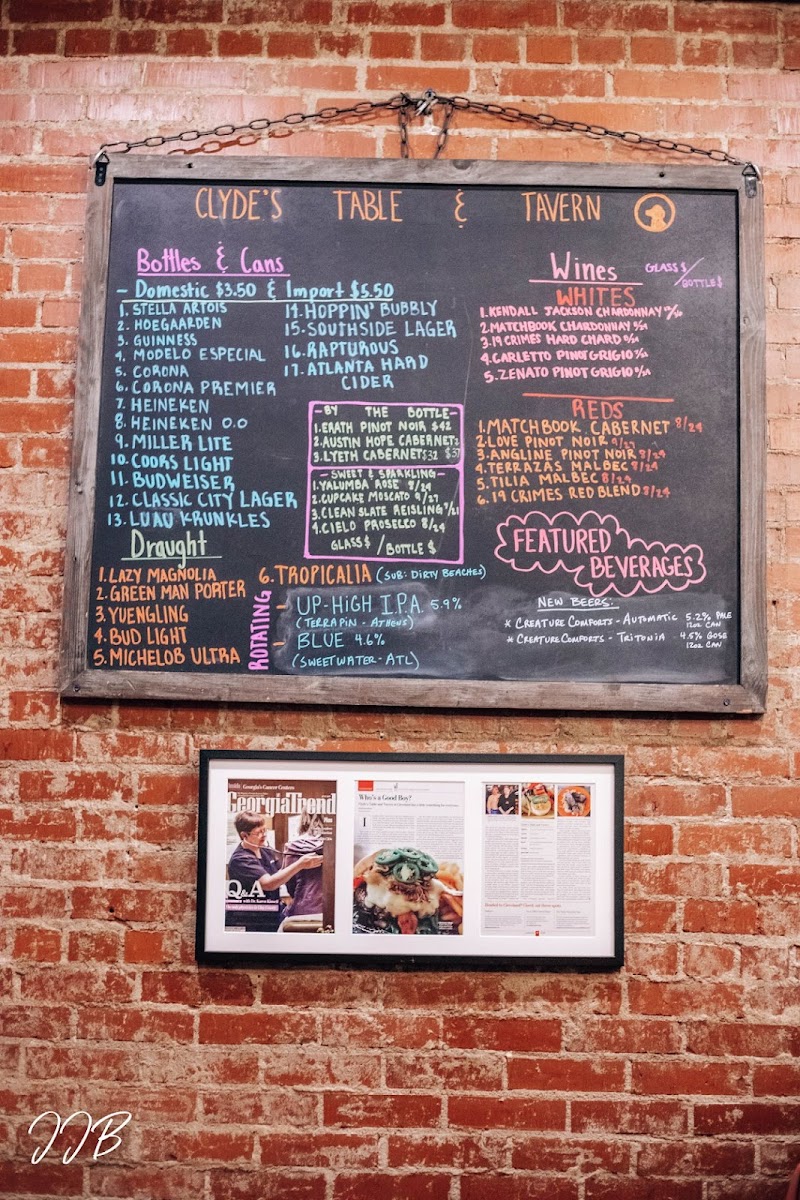 CLYDE'S TABLE & TAVERN
Bottles & Cans
- Domestic $3.50 & Import $5.50
1. STELLA ARTOIS
2. HOEGAARDEN
3. GUINNESS
4. MODELO ESPECIAL
5. CORONA
6. CORONA PREMIER
7. HEINEKEN
8. HEINEKEN 0.0
9. MILLER LITE
10. COORS LIGHT
11. BUDWEISER
12. CLASSIC CITY LAGER
13. LUAU KRUNKLES
14. HOPPIN' BUBBLY
15. SOUTHSIDE LAGER
16. RAPTUROUS
17. ATLANTA HARD
CIDER
- BY THE BOTTLE -
1. ERATH PINOT NOIR $42
2. AUSTIN HOPE CABERNET
3. LYETH CABERNET $32 $57
- SWEET & SPARKLING -
1. YALUMBA ROSE 8/24
2. CUPCAKE MOSCATO 9/27
3. CLEAN SLATE REISLING 7/21
4. CIELO PROSECCO 8/24
GLASS $ / BOTTLE $
Wines GLASS $ / BOTTLE $
WHITES
1. KENDALL JACKSON CHARDONNAY
2. MATCHBOOK CHARDONNAY
3. 19 CRIMES HARD CHARD
4. CARLETTO PINOT GRIGIO
5. ZENATO PINOT GRIGIO
REDS
1. MATCHBOOK CABERNET 8/24
2. LOVE PINOT NOIR 9/27
3. ANGLINE PINOT NOIR 8/24
4. TERRAZAS MALBEC 8/24
5. TILIA MALBEC 8/24
6. 19 CRIMES RED BLEND 8/24
FEATURED
BEVERAGES
NEW BEERS:
* CREATURE COMFORTS - AUTOMATIC 5.2% PALE
12oz CAN
* CREATURE COMFORTS - TRITONIA - 4.5% GOSE
12oz CAN
Draught
1. LAZY MAGNOLIA
2. GREEN MAN PORTER
3. YUENGLING
4. BUD LIGHT
5. MICHELOB ULTRA
6. TROPICALIA (SUB: DIRTY BEACHES)
ROTATING
- UP-HIGH I.P.A. 5.9%
(TERRAPIN - ATHENS)
- BLUE 4.6%
(SWEETWATER - ATL)
Georgia's Cancer Centers
GeorgiaTrend
Q&A
with Dr. Karen Kinsell
Who's a Good Boy?
JJB